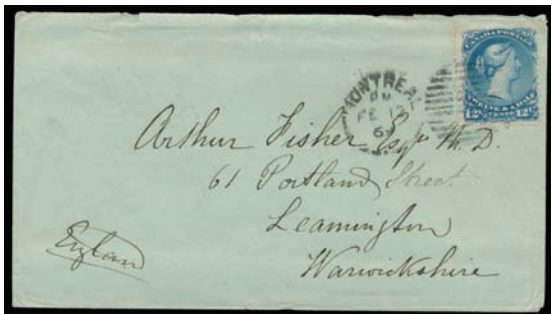 CANADA POSTAGE
12½ CENTS 12½
MONTREAL
PM
FE 12
69
Arthur Fisher Esqr M.D.
61 Portland Street
Leamington
Warwickshire
England